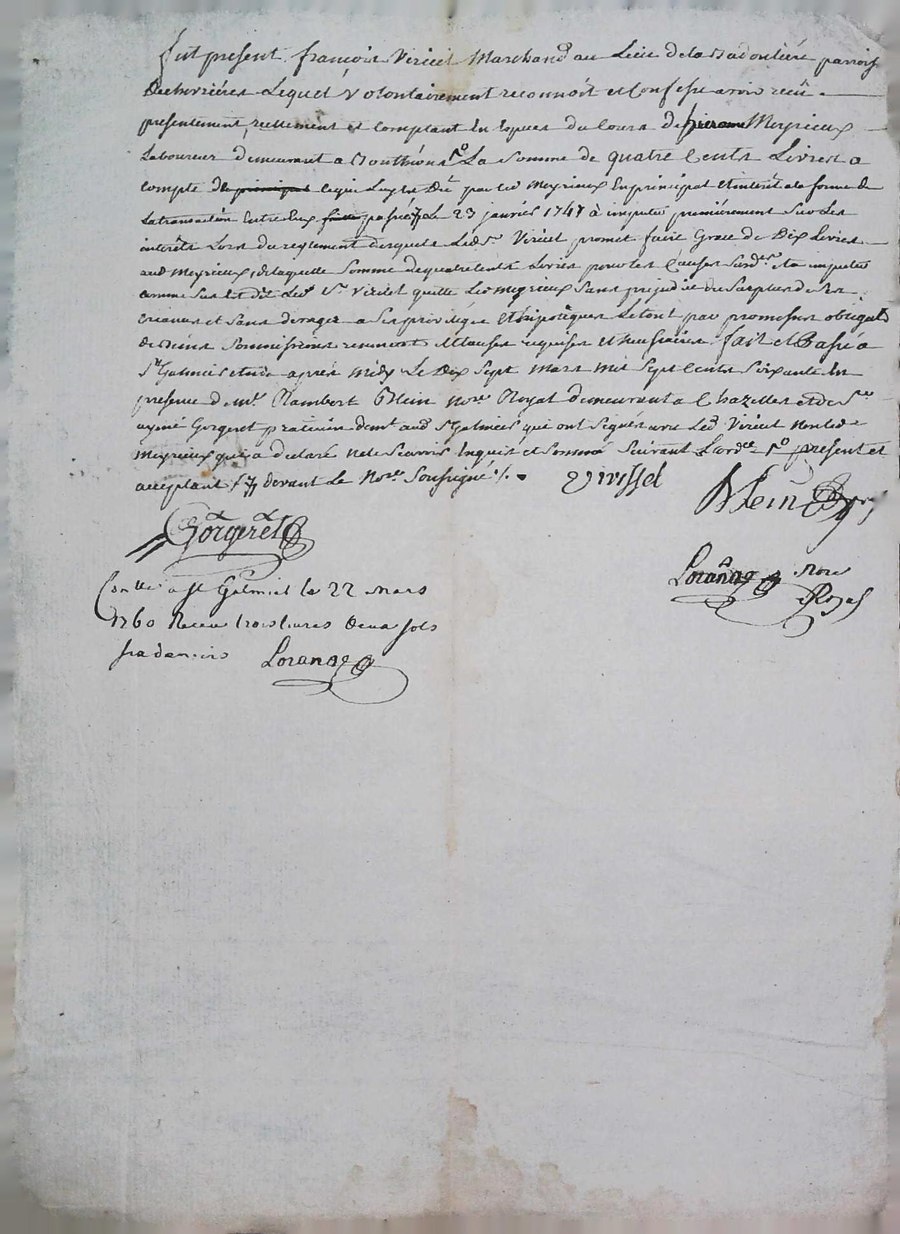 fut present françois Viricel Marchand au Lieu de la Badoulière parroisse
De chevrières Lequel volontairement reconnoit et Confesse avoir reçû
presentement, reellement et comptant En Especes du Cours de pierre Meyrieux
Laboureur demeurant a La Somme de quatre Cents Livres a
compte de principal luy Est Dû par led Meyrieux En principal et interêt a la forme de
La transaction Entre Eux passée Le 23 janvier 1747 à imputer premièrement Sur Les
interêts Lors du reglement desquels Led Sr Viricel promet faire Grace de Dix Livres
aud Meyrieux, de laquelle Somme de quatre Cents Livres pour les Causes Susdes Et a imputer
comme Sus Est dit Led Sr Viricel quitte Led Meyrieux Sans prejudice du Surplus de Ses
Creances et Sans deroger a Ses privilèges et hipotèques Le tout par promesses obligat
de biens Soumissions renonons et Clauses requises et necessaires fait et Passé a
St Galmier Etude après Midy Le Dix Sept Mars Mil Sept Cents Soixante En
presence de Mr Rambert Blein nore Royal demeurant a Chazelles et de Sr
aymé Gorgeret praticien demt aud St Galmier qui ont Signés avec Led Viricel non led
Meyrieux qui a declaré ne le Scavoir Enquis et Sommé Suivant L'ordce present et
acceptant devant Le Nore Soussigné ./.
Virissel
Blein
Gorgeret
Lorange Nore
Royal
Conllé a St Galmier le 22 mars
1760 Receu trois livres Deux sols
six deniers Lorange